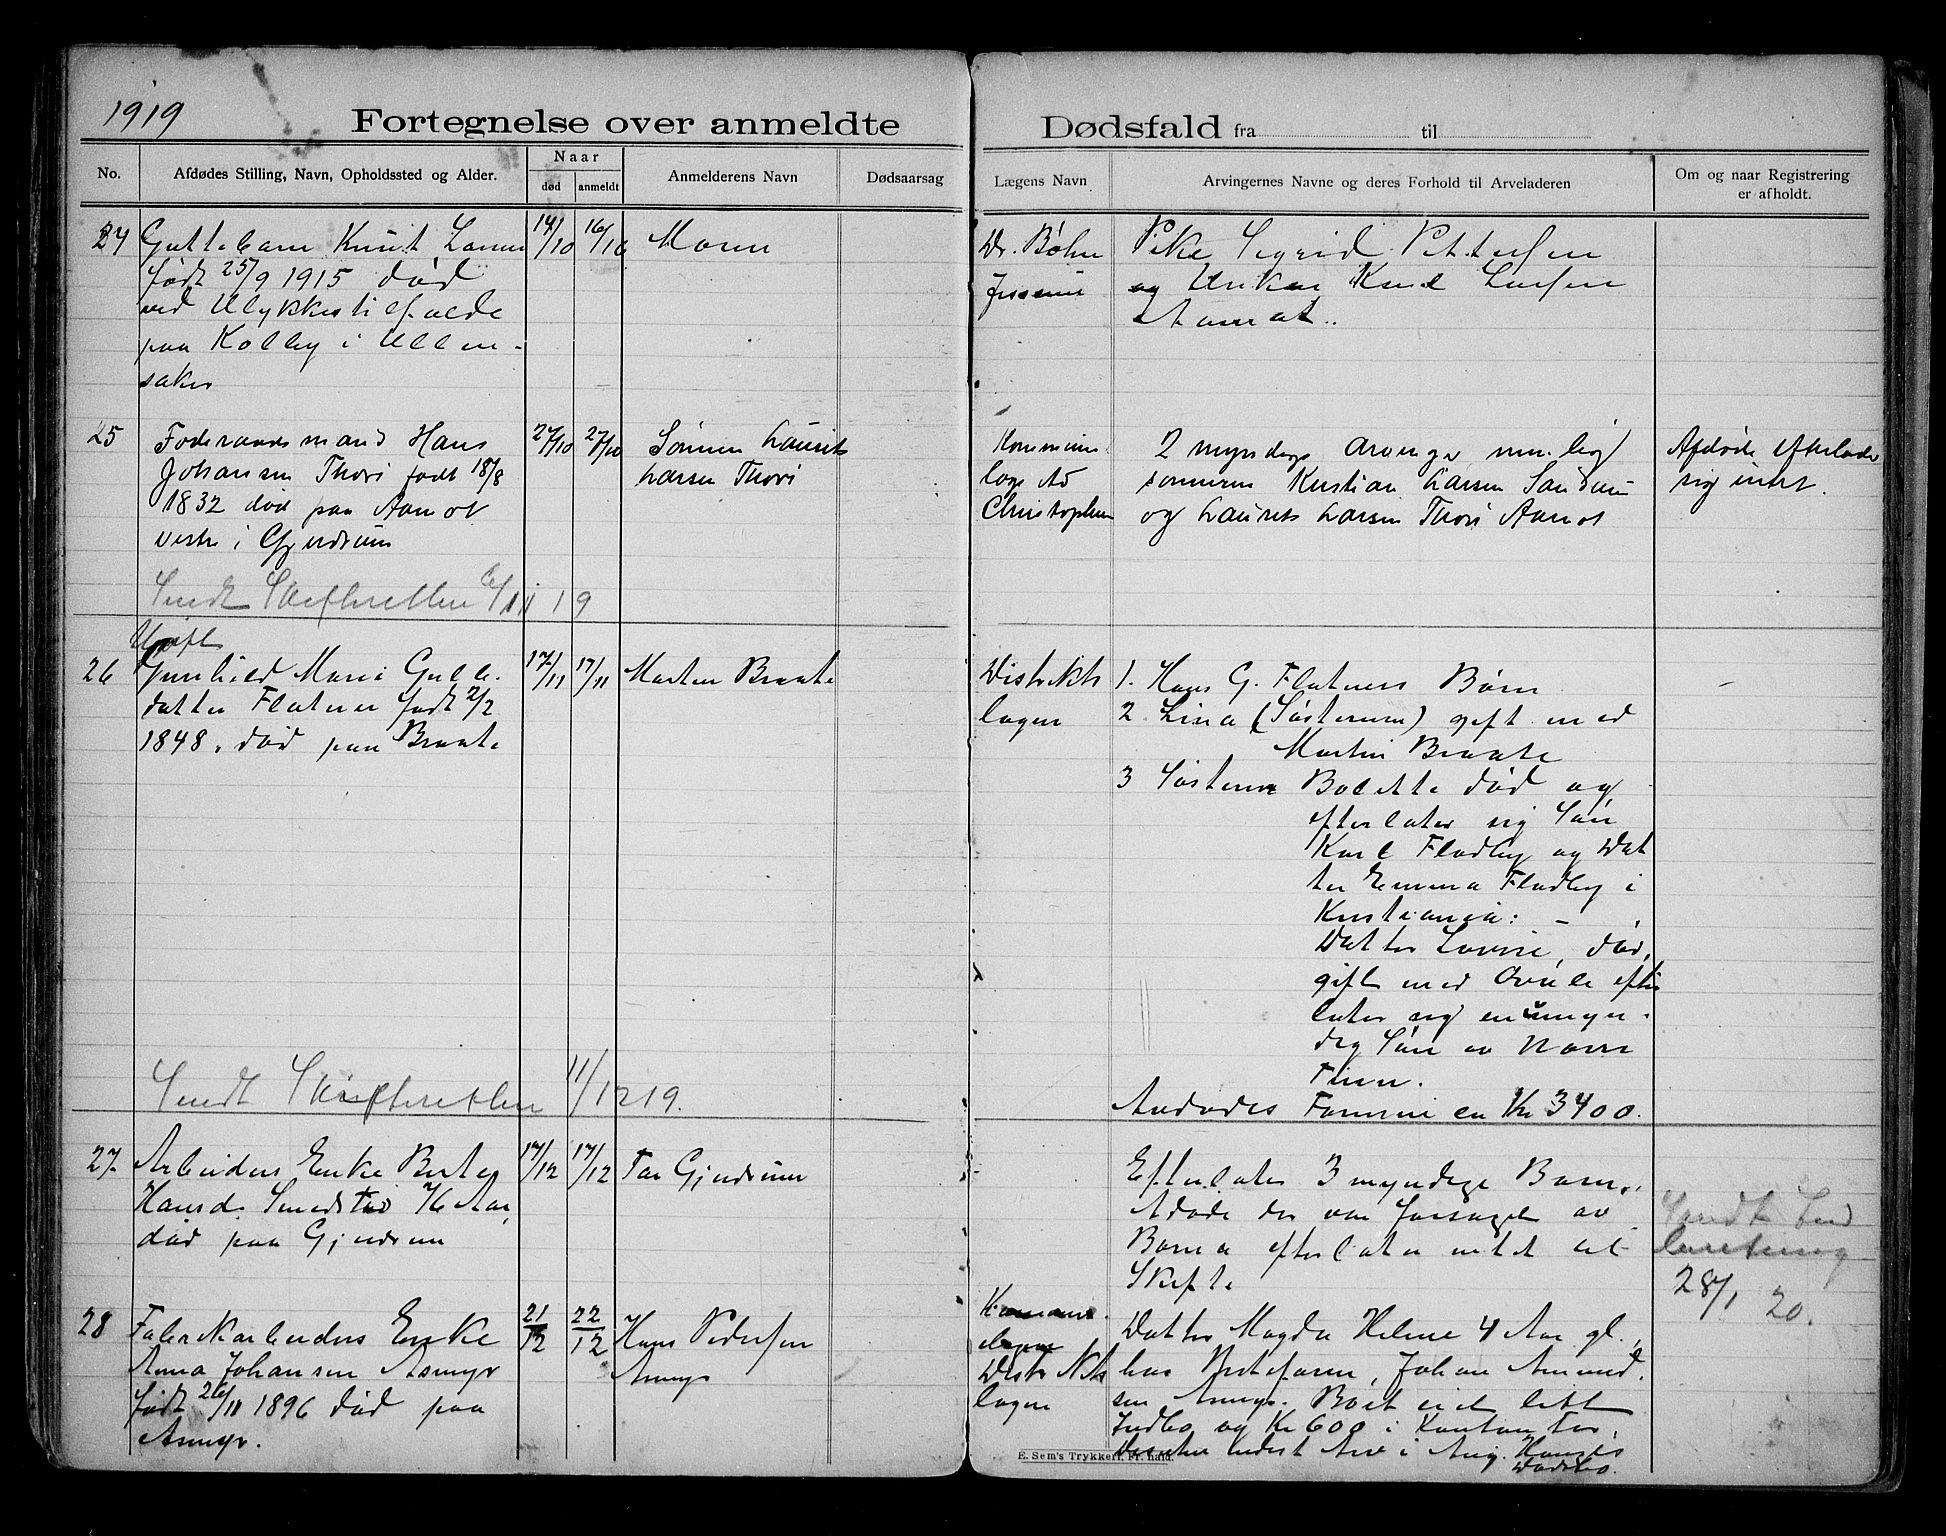 1919
Fortegnelse over anmeldte Dødsfald fra til
No.
Afdødes Stilling, Navn, Opholdssted og Alder.
Naar
død
anmeldt
Anmelderens Navn
Dødsaarsag
Lægens Navn
Arvingernes Navne og deres Forhold til Arveladeren
Om og naar Registrering
er afholdt.
24
Guttebarn Knut Larsen
født 25/9 1915 død
ved Ulykkestilfælde
paa Kolby i Ullen-
saker
14/10
16/10
Moren
Dr. Bøhn
Jessheim
Pike Sigrid Pettersen
og Knut Larsen
25
Foderaadsmand Hans
Johansen Thori født 18/8
1832 død paa Aamot
vestre i Gjerdrum
27/10
27/10
Sønnen Laurits
Larsen Thori
Kommune
læge Ad
Christophersen
2 myndige arvinger nemlig
sønnerne Kristian Larsen Sandum
og Laurits Larsen Thori Aamot
Afdøde efterlader
sig intet.
Sendt Skifteretten 6/11 19
Ugift
26
Gunhild Marie Gulb.
datter Flatner født 2/2
1848. død paa Braate
17/11
17/11
Morten Braate
Distrikts
lægen
1. Hans G. Flatners Børn
2. Lina (Søsteren) gift med
Martin Braate
3 Søsteren Bolette død og
efterlater sig Søn
Karl Fladby og Dat
ter Emma Fladby i
Kristiania: -
Datter Lovise, død,
gift med efter
later sig en umyn-
dig Søn av Navn
Finn.
Avdødes Formue en Kr 3400.
Sendt Skifteretten 11/12 19.
27.
Arbeiders Enke Berte
Hansd. Smedstad 76 Aar,
død paa Gjerdrum
17/12
17/12
Tor Gjerdrum
Efterlater 3 myndige Børn.
Avdøde der var forsørget av
Børna efterlater intet at
Skifte
Sendt
28/1 20.
28
Fabrikarbeiders Enke
Anna Johansen Asmyr
født 26/11 1896 død paa
Asmyr.
21/12
22/12
Hans Pedersen
Asmyr
Distrikts
lægen
Datter Magda Helene 4 Aar gl.,
hos Bestefaren, Johan Amund.
sen Asmyr. Boet eiet litt
Indbo og Kr 600 i Kontanter,
Desuten lidt Arv i Aug. Hanses
Dødsbo.
E. Sem's Trykkeri, Fr.hald.